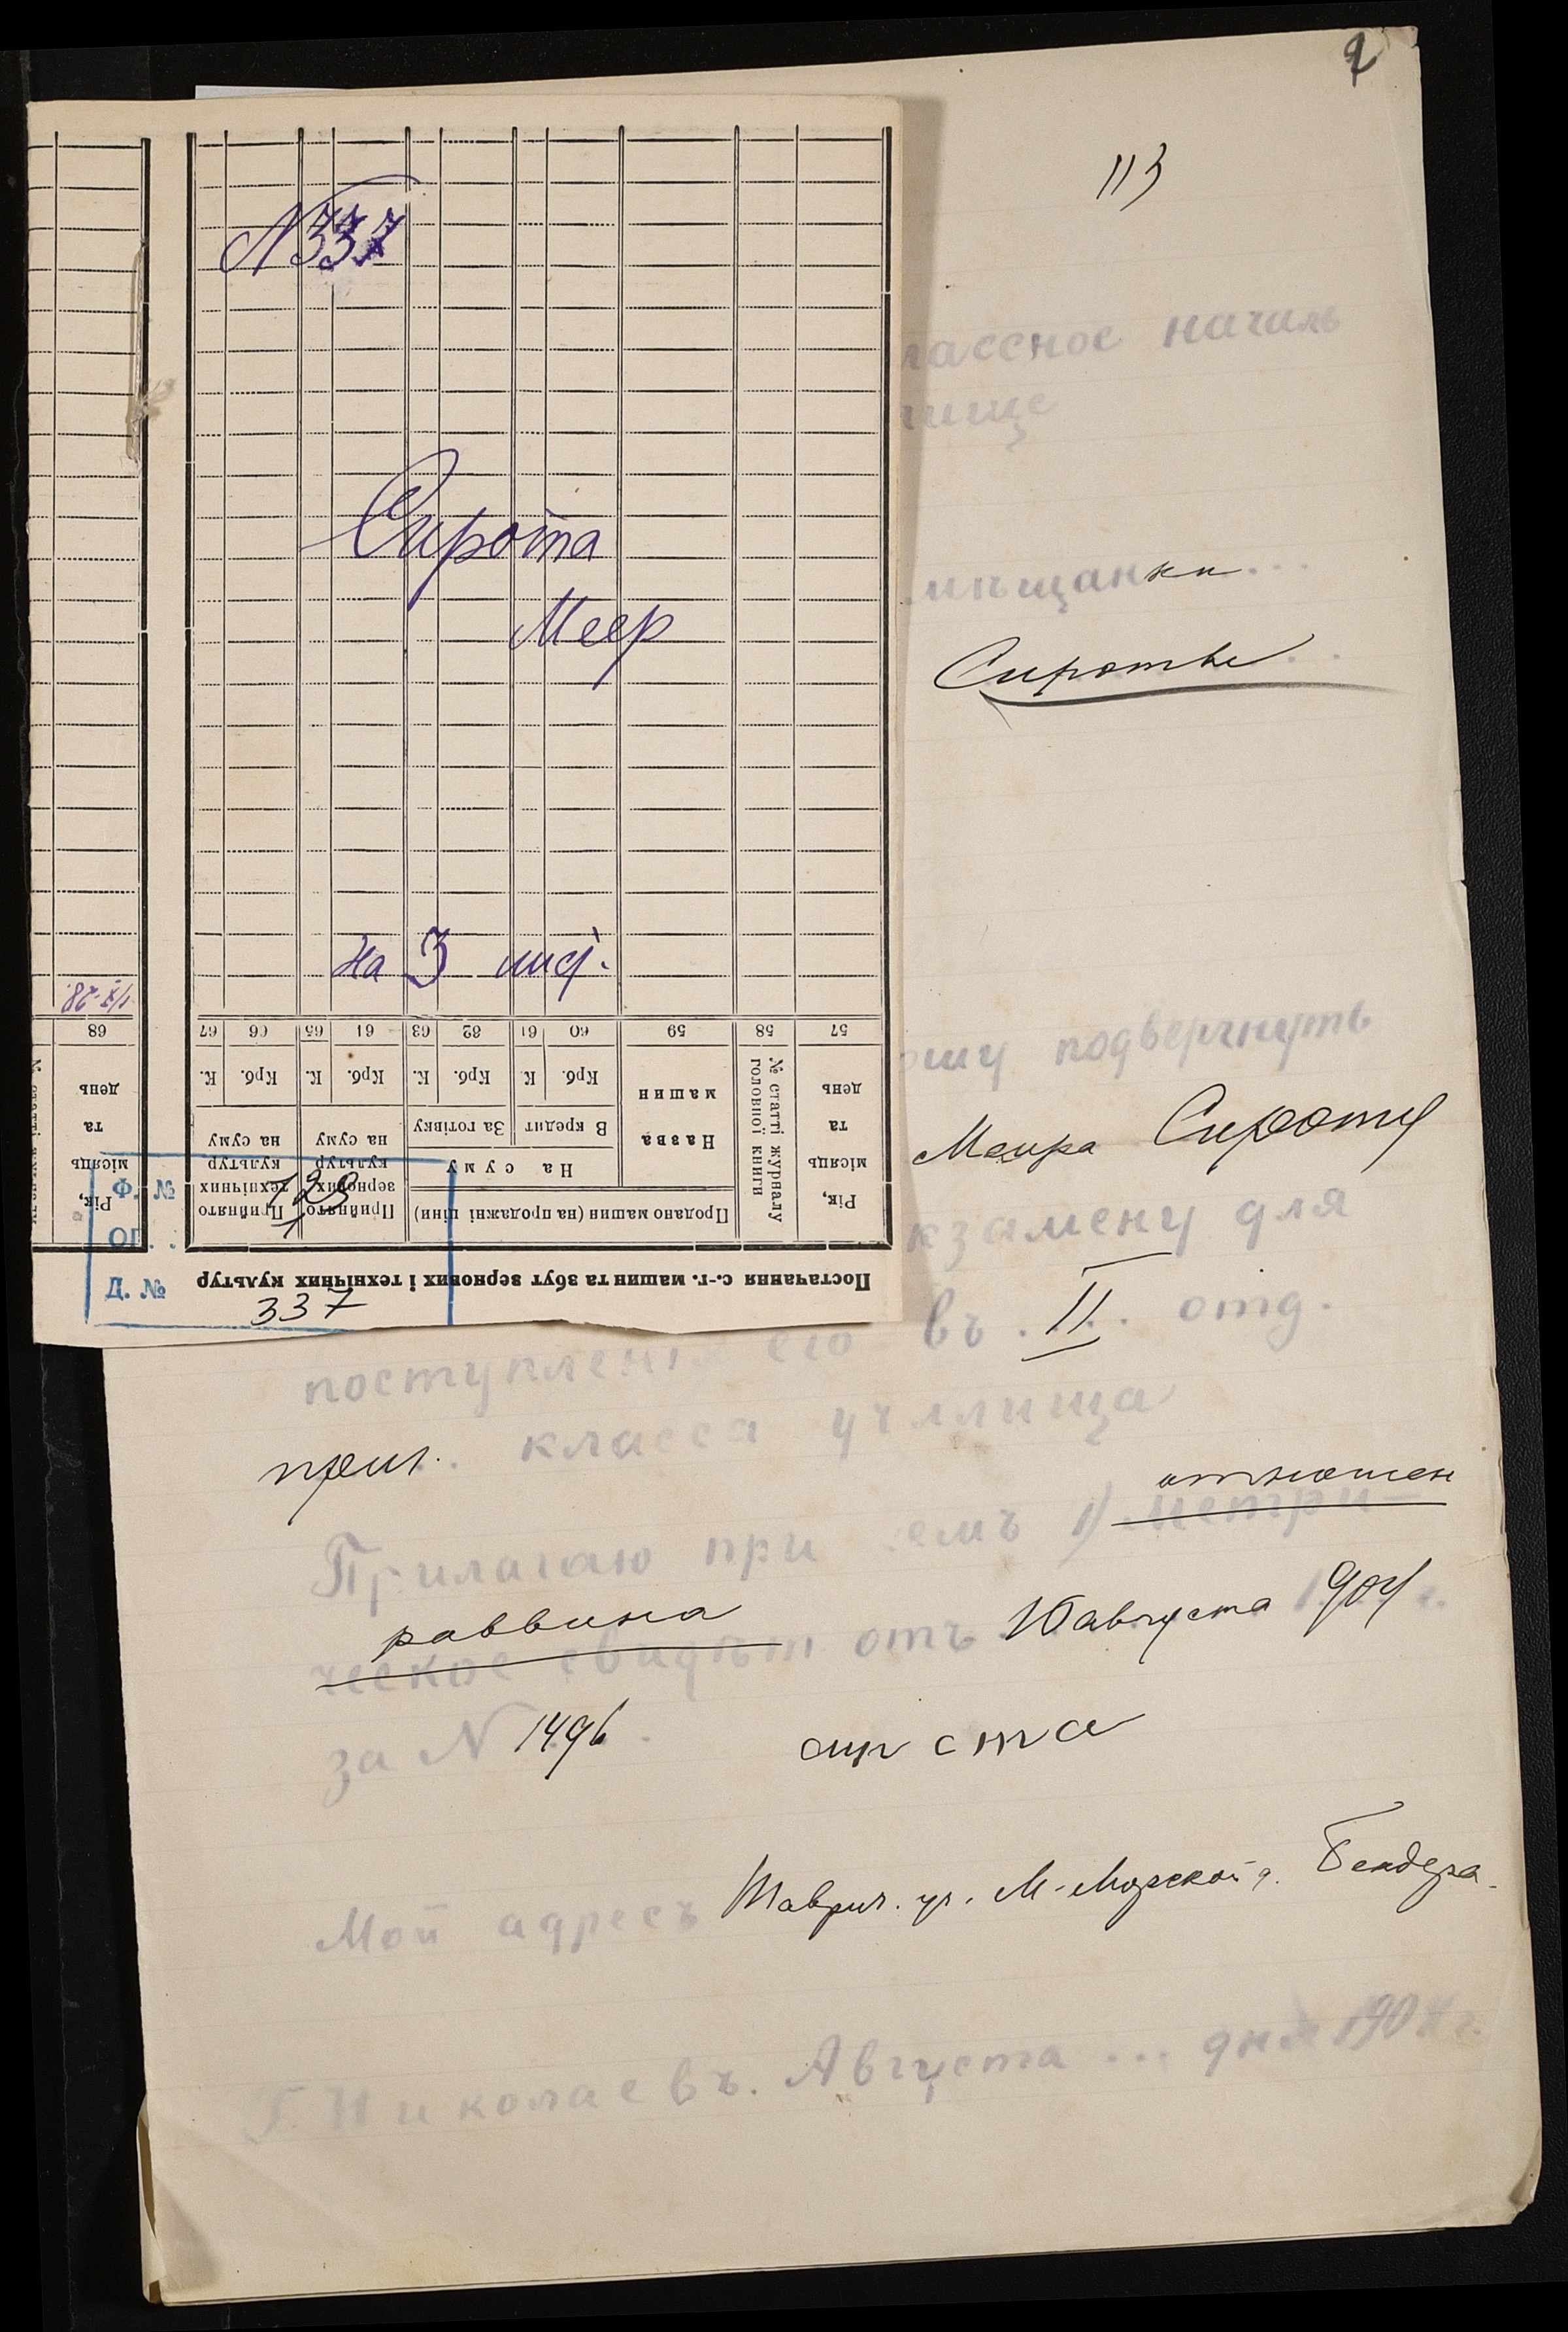 N337
Сирота
Меер
на 3 лист.
1/X-28.
Постачання с.-г. машин та збут зернових і технічних культур
Рік, місяць та день
№ статті журналу головної книги
Продано машин (на продажні ціни)
Назва машин
На суму
В кредит
За готівку
Прийнято зернових культур на суму
Прийнято технічних культур на суму
Крб. К. Крб. К. Крб. К. Крб. К.
57 58 59 60 61 62 63 64 65 66 67
Рік, місяць та день
68
Ф. № 129
ОП. 1
Д. № 337
2
113
лассное началь
лище
мѣщанки...
Сироты
ошу подвергнуть
Меира Сироту
кзамену для
поступленія его въ II отд.
приг. класса училища
отношен
Прилагаю при семъ 1) метри-
раввина
ческое свидѣт отъ 10 августа 904 г.
за N 1496.
Мой адресъ Таврич. ул. М-Морской д. Бендера.
Г. Николаевъ. Августа ... дня 1904 г.